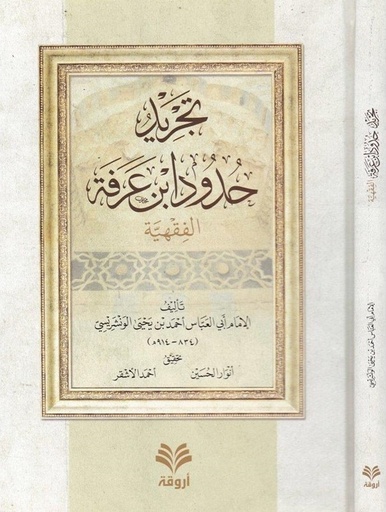 تجريد
حدود ابن عرفة
الفقهية
تأليف
الإمام أبي العباس أحمد بن يحيى الونشريسي
(٨٣٤ - ٩١٤هـ)
تحقيق
أنوار الحسين
أحمد الأشقر
أروقة
تجريد حدود ابن عرفة
الفقهية
الإمام أبي العباس أحمد بن يحيى الونشريسي
أروقة